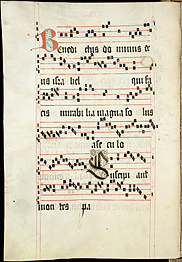 Benedictus dominus de
us israhel qui fa
cis mirabilia magna solus
a se cu lo
Suscipi ant
mon tes pa